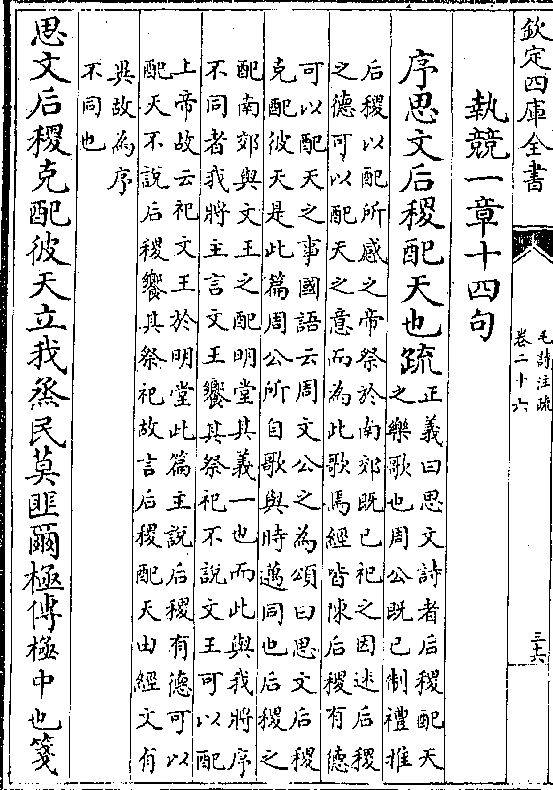 欽定四庫全書
毛詩注疏
卷二十六
三十六
執競一章十四句
序思文后稷配天也疏
正義曰思文詩者后稷配天
之樂歌也周公既已制禮推
后稷以配所感之帝祭於南郊既已祀之因述后稷
之德可以配天之意而為此歌焉經皆陳后稷有德
可以配天之事國語云周文公之為頌曰思文后稷
克配彼天是此篇周公所自歌與時邁同也后稷之
配南郊與文王之配明堂其義一也而此與我將序
不同者我將主言文王饗其祭祀不說文王可以配
上帝故云祀文王於明堂此篇主說后稷有德可以
配天不說后稷饗其祭祀故言后稷配天由經文有
異故為序
不同也
思文后稷克配彼天立我烝民莫匪爾極傳極中也箋